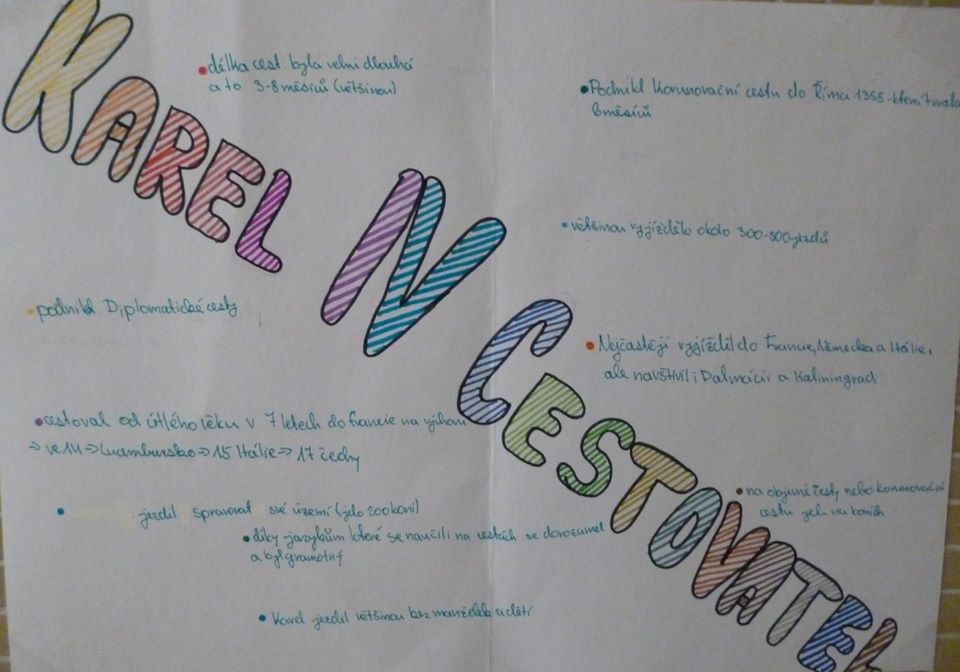 KAREL IV CESTOVATEL
• délka cest byla velmi dlouhá
a to 3-8 měsíců (většinou)
• Podnikl Korunovační cestu do Říma 1355 - která trvala
8 měsíců
• většinou vyjíždělo okolo 300-500 jezdů
• podnikl Diplomatické cesty
• Nejčastěji vyjížděl do Francie, Německa a Itálie,
ale navštívil i Dalmácii a Kaliningrad
• cestoval od útlého věku v 7 letech do Francie na výchovu
⇒ ve 14 ⇒ Lucembursko ⇒ 15 Itálie ⇒ 17 čechy
• na objevné cesty nebo korunovační
cestu jeli na koních
• jezdil spravovat své území (jelo 200 koní)
• díky jazykům které se naučil na cestách se dorozuměl
a byl gramotný
• Karel jezdil většinou bez manželek a dětí